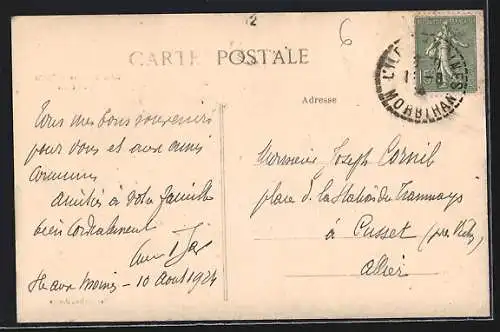 2
6
CARTE POSTALE
Adresse
L'ILE MOINES
MORBIHAN
Tous mes bons souvenirs
pour vous et aux amis
communs
Amitiés à votre famille
bien cordialement
Ile aux Moines - 10 Aout 1924
Monsieur Joseph Cornil
place de la Station du Tramways
à Cusset (près Vichy)
Allier